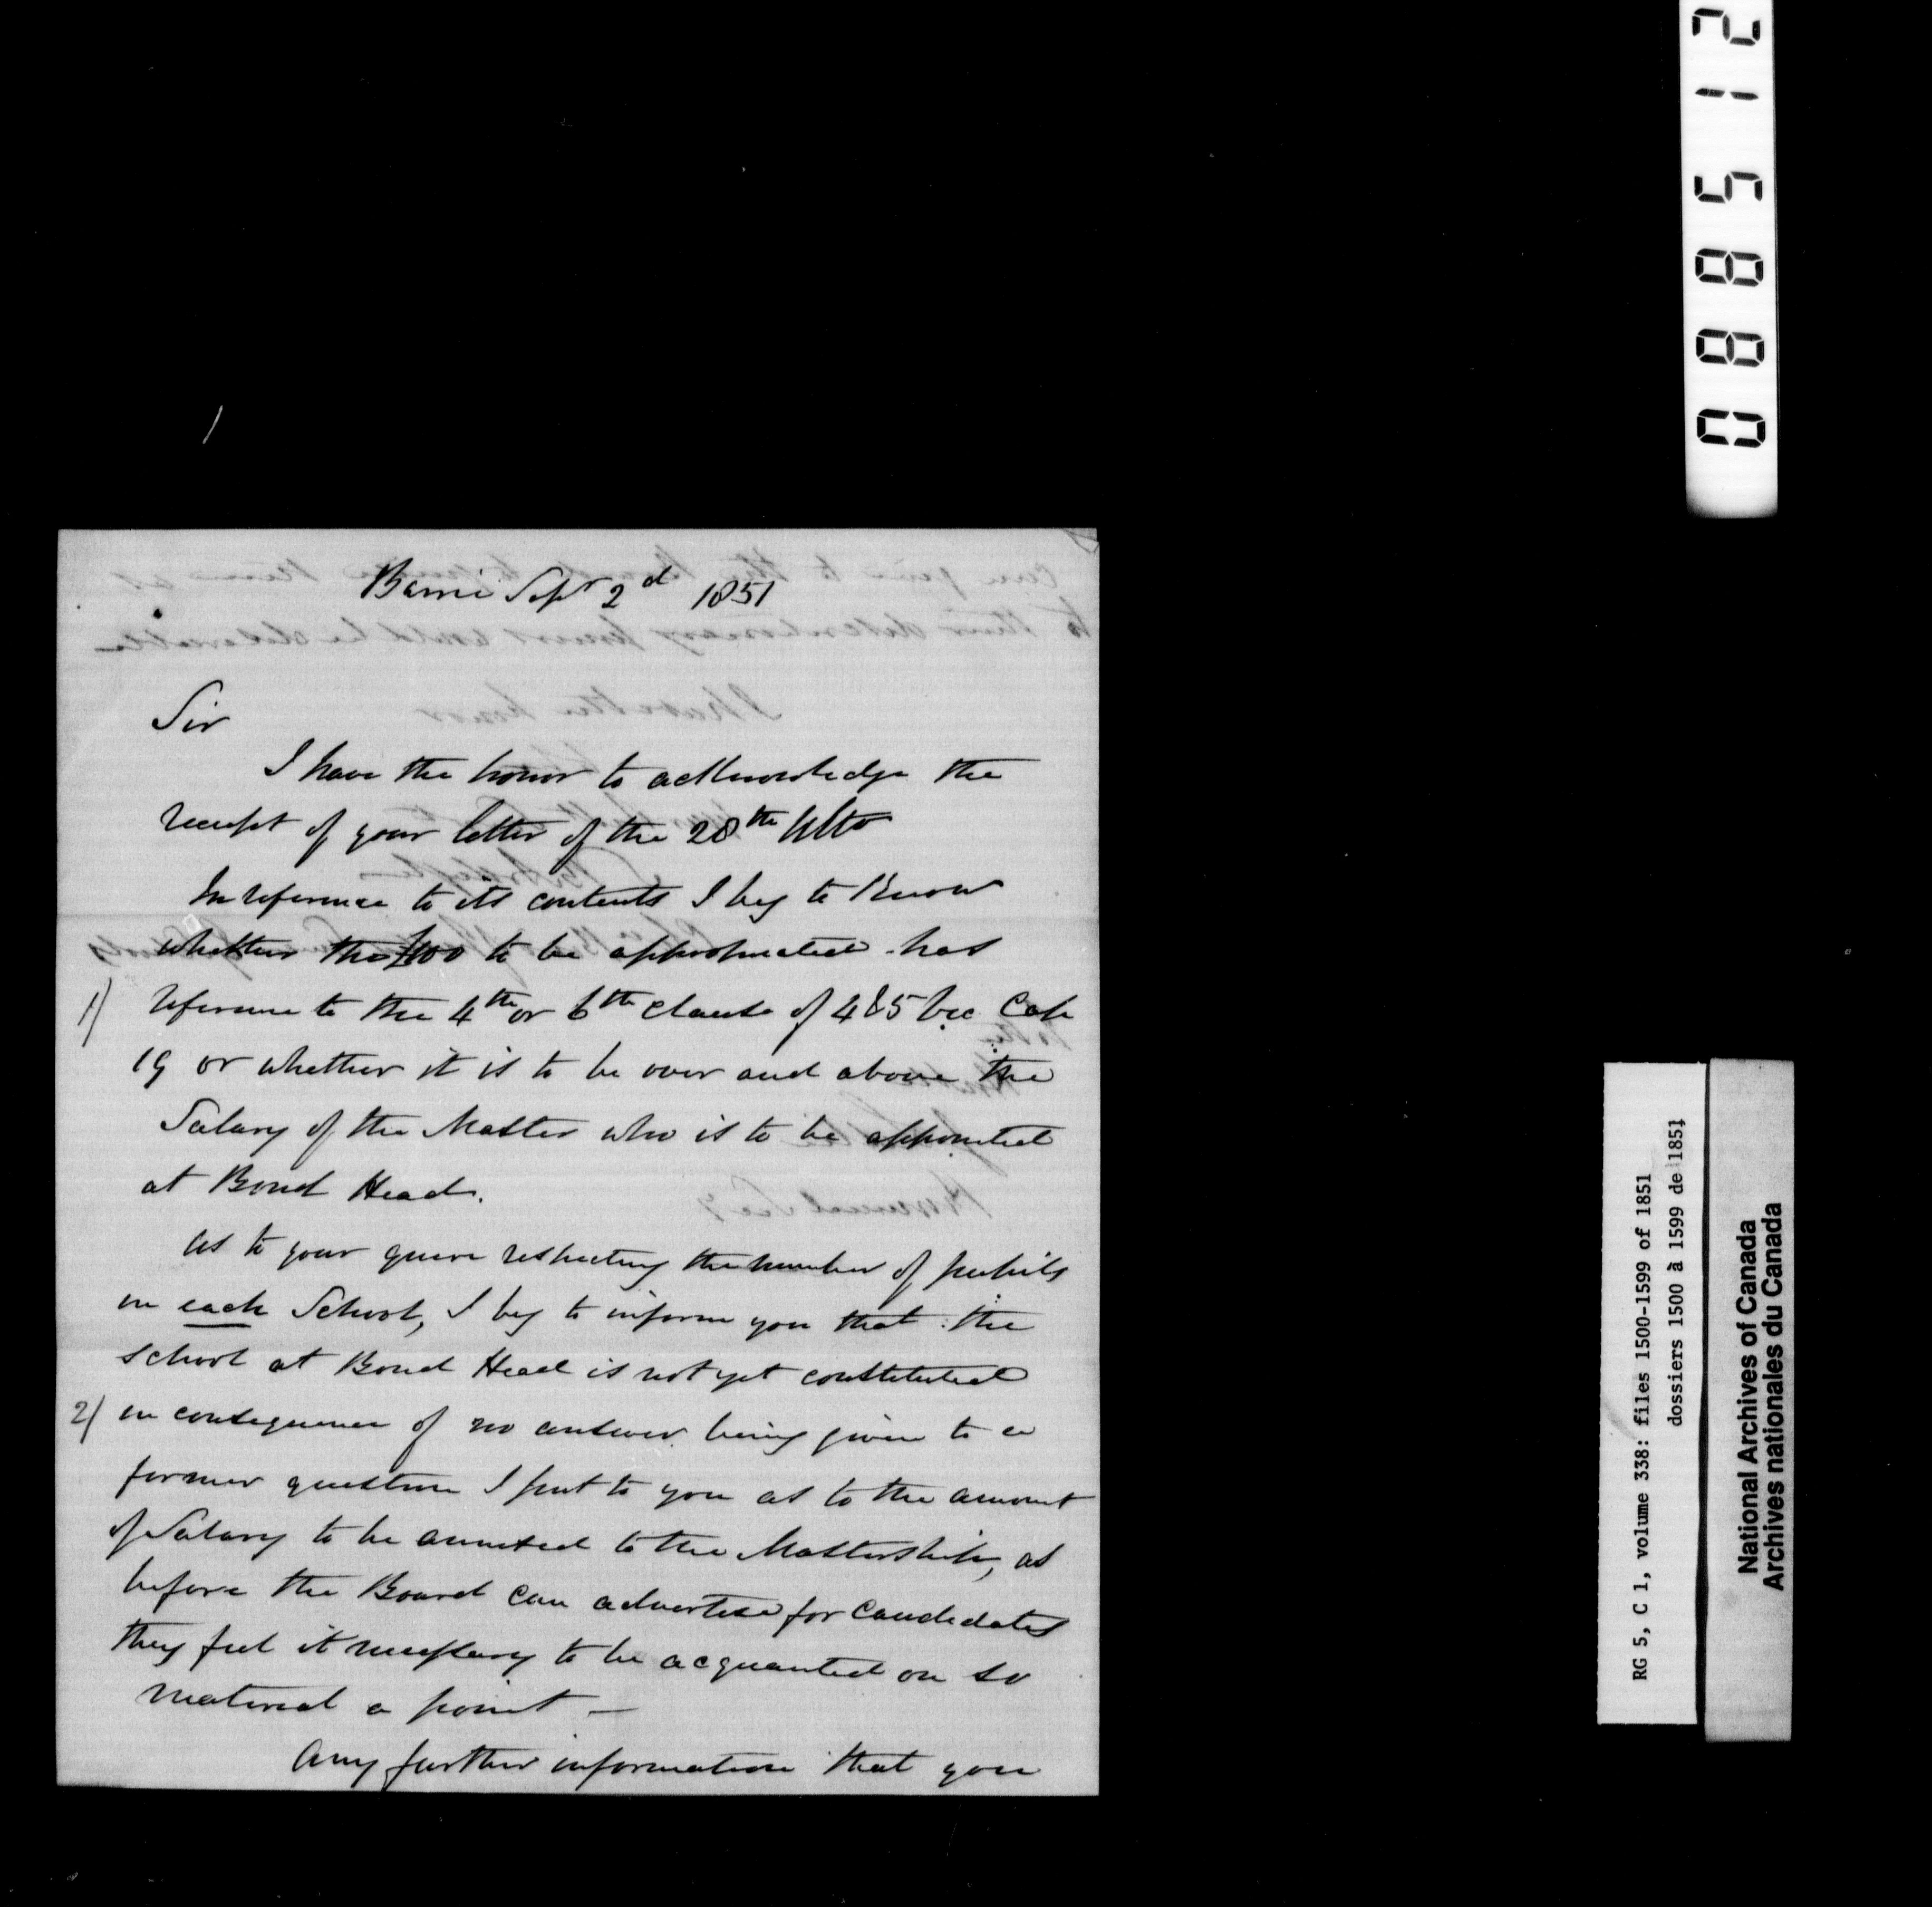 Barrie Sept 2d 1851
Sir
I have the honor to acknowledge the
receipt of your letter of the 28th Ulto
In reference to its contents I beg to Know
whether the £100 to be appropriated has
1) reference to the 4th or 6th clause of 4 & 5 Vic Cap
19 or whether it is to be over and above the
Salary of the Master who is to be appointed
at Bond Head.
As to your quere respecting the number of pupils
in each School, I beg to inform you that the
school at Bond Head is not yet constituted
2) in consequence of no answer being given to a
former question I put to you as to the amount
of Salary to be annexed to the Mastership, as
before the Board can advertise for Candidates
they feel it necessary to be acquainted on so
material a point –
Any further information that you
088512
RG 5, C 1, volume 338: files 1500-1599 of 1851
dossiers 1500 à 1599 de 1851
National Archives of Canada
Archives nationales du Canada